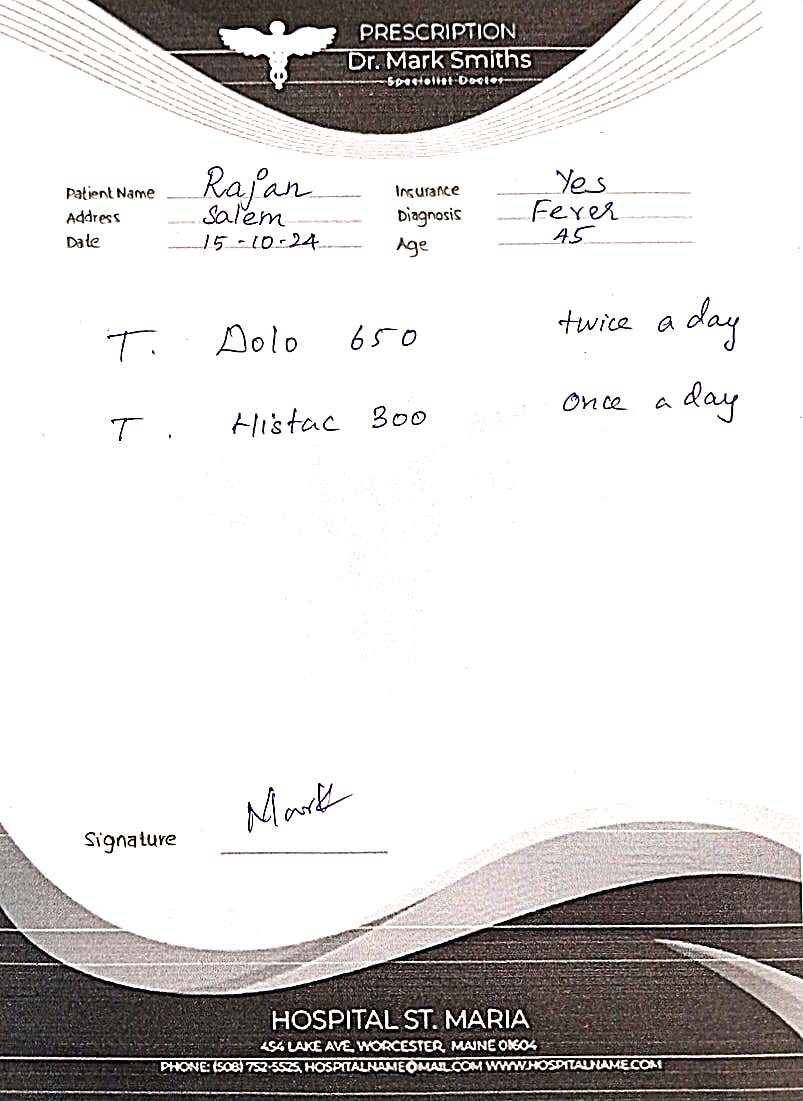 PRESCRIPTION
Dr. Mark Smiths
Specialist Doctor
Patient Name Rajan Insurance Yes
Address Salem Diagnosis Fever
Date 15-10-24 Age 45
T. Dolo 650 twice a day
T. Histac 300 once a day
Mark
Signature
HOSPITAL ST. MARIA
454 LAKE AVE, WORCESTER, MAINE 01604
PHONE: (508) 752-5525, HOSPITALNAME@MAIL.COM WWW.HOSPITALNAME.COM